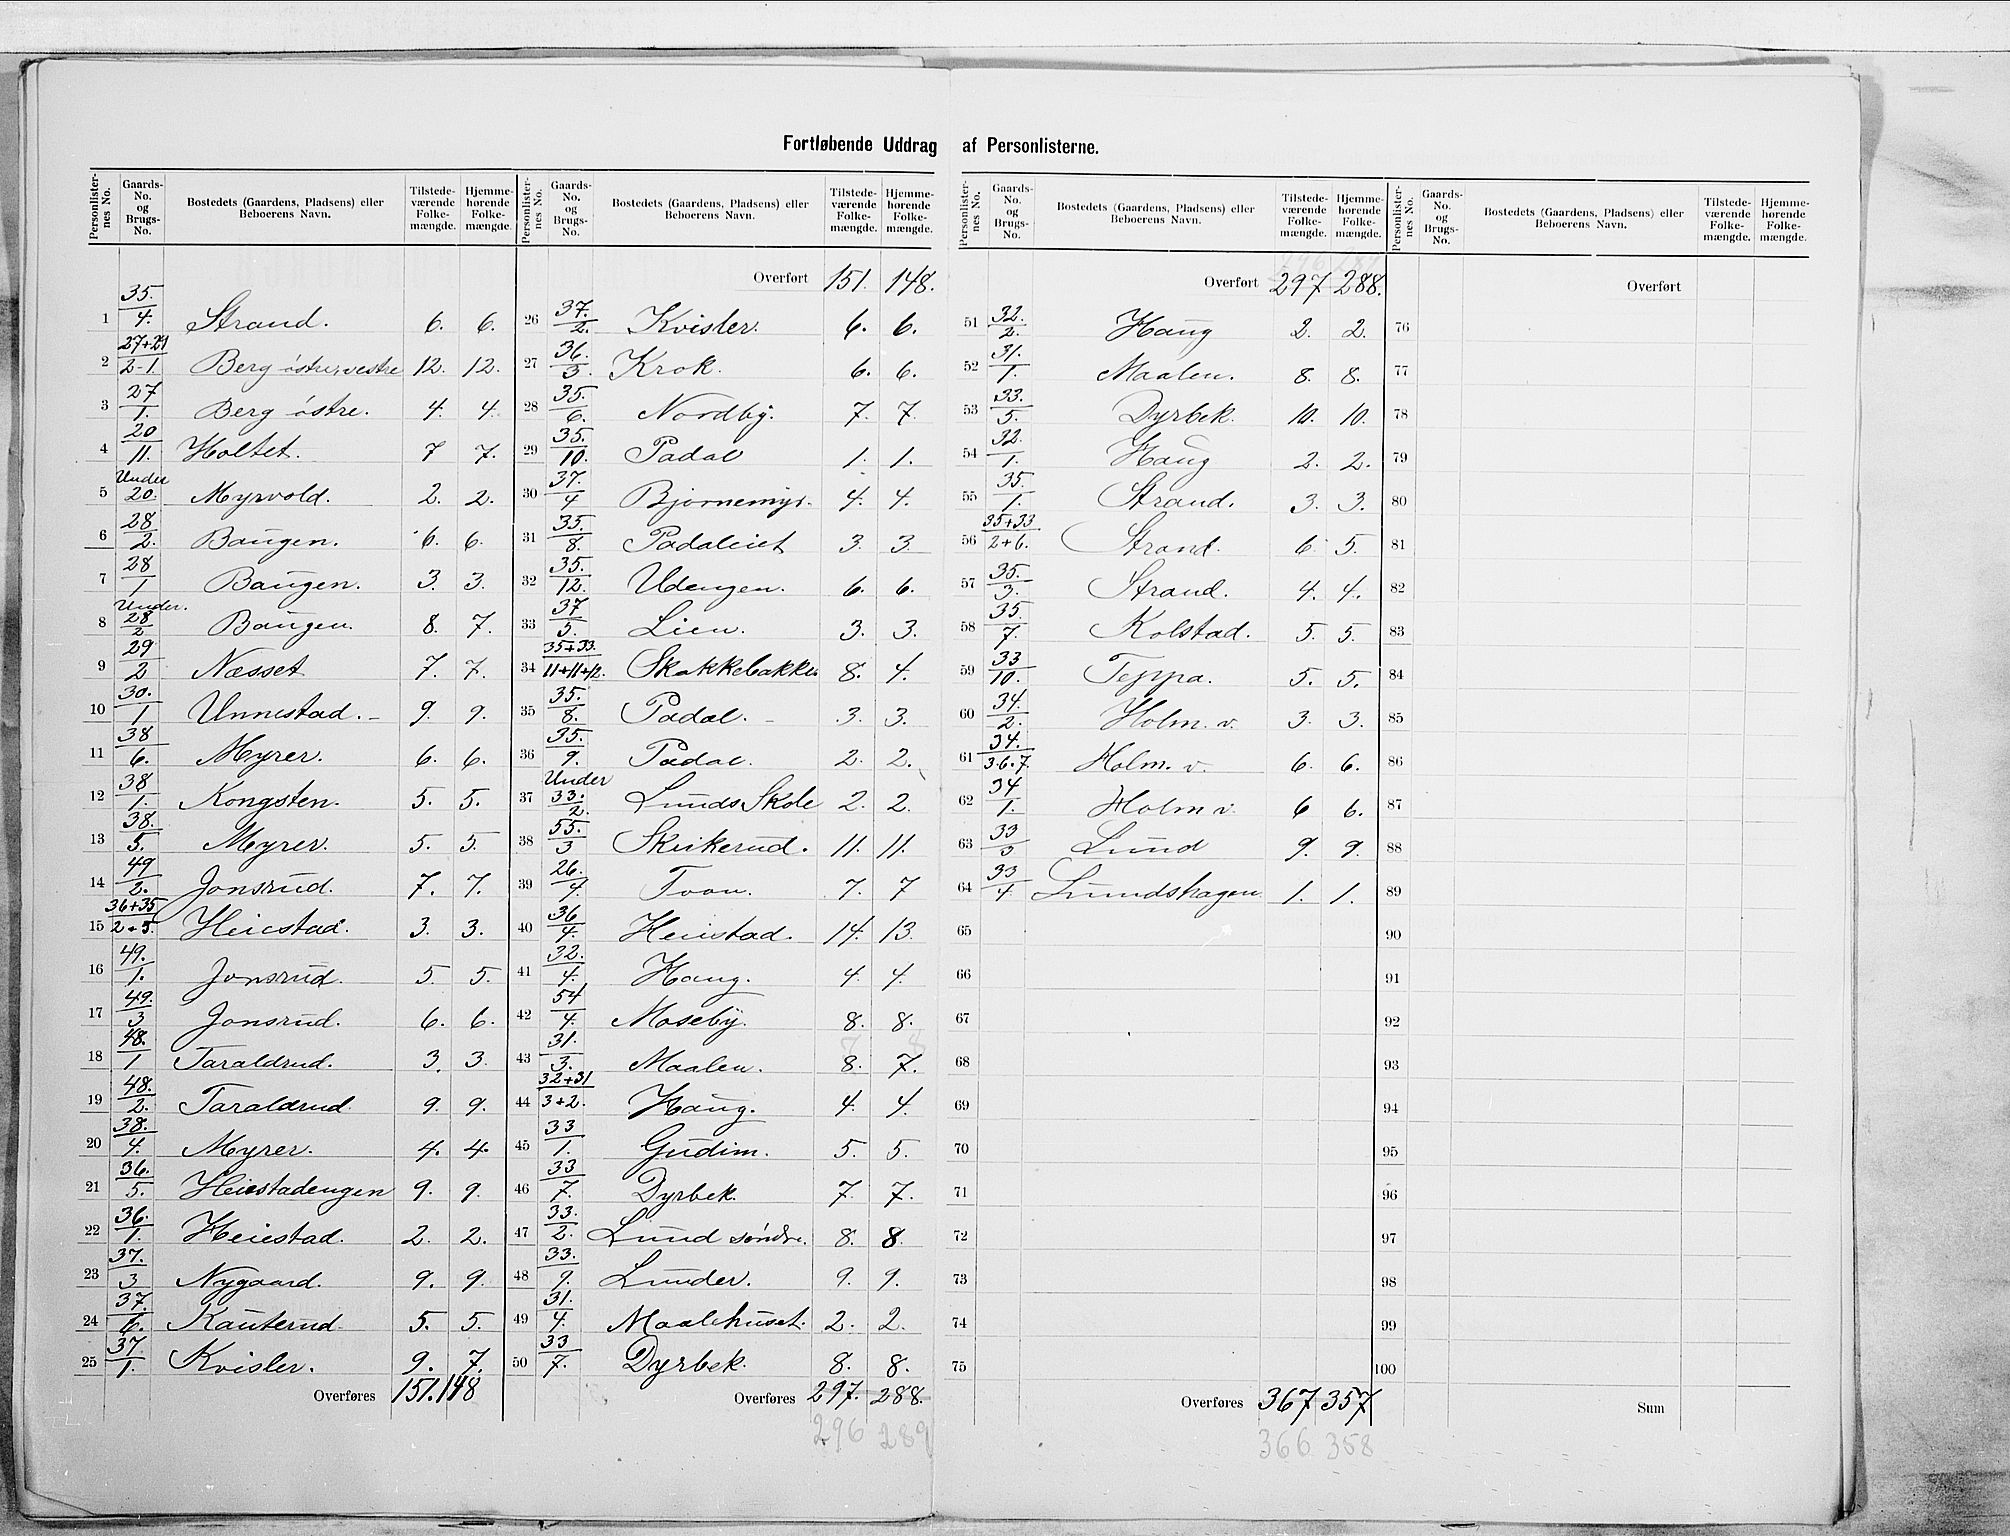 Fortløbende Uddrag af Personlisterne.
Personlisternes No. Gaards-No. og Brugs-No. Bostedets (Gaardens, Pladsens) eller Beboerens Navn. Tilstedeværende Folkemængde. Hjemmehørende Folkemængde.
1 35./4. Strand. 6. 6.
2 27+21/2-1. Berg østre, vestre 12. 12.
3 27/1. Berg østre. 4. 4.
4 20/11. Holtet. 7 7.
5 Under 20. Myrvold. 2. 2.
6 28/2. Baugen. 6. 6.
7 28/1 Baugen. 3. 3.
8 Under. 28/2 Baugen. 8. 7.
9 29/2 Næsset 7. 7.
10 30./1 Unnestad. 9. 9.
11 38/6. Myrer. 6. 6.
12 38/1. Kongsten. 5. 5.
13 38./5. Myrer. 5. 5.
14 49/2. Jonsrud. 7. 7.
15 36+35/2+5. Heiestad. 3. 3.
16 49./1. Jonsrud. 5 5.
17 49./3 Jonsrud. 6. 6.
18 48./1 Taraldrud. 3. 3.
19 48./2. Taraldrud. 9. 9.
20 38./4. Myrer. 4. 4.
21 36./5. Heiestadengen 9. 9.
22 36./1. Heiestad. 2. 2.
23 37./3 Nygaard. 9. 9.
24 37./6. Kauterud. 5. 5.
25 37/1. Kvisler. 9. 7.
Overføres 151. 148
Personlisternes No. Gaards-No. og Brugs-No. Bostedets (Gaardens, Pladsens) eller Beboerens Navn. Tilstedeværende Folkemængde. Hjemmehørende Folkemængde.
Overført 151. 148.
26 37./2. Kvisler. 6. 6.
27 36./3. Krok. 6. 6.
28 35./6. Nordby. 7. 7.
29 35./10. Padal 1. 1.
30 37./4 Bjørnemyr. 4. 4.
31 35./8. Padaleiet 3. 3.
32 35./12. Udengen. 6. 6.
33 37/5. Lien. 3. 3.
34 35+33./11+11+12. Skakkebakken 8. 4.
35 35./8. Padal. 3. 3.
36 35./9. Padal. 2. 2.
37 Under 33./2. Lunds Skole 2. 2.
38 55./3 Skikerud. 11. 11.
39 26./4. Toon. 7. 7
40 36/4. Heiestad. 14. 13.
41 32./4. Haug. 4. 4.
42 54/4. Moseby. 8. 8.
43 31./3. Maalen. 8. 7.
44 32+31/3+2. Haug. 4. 4.
45 33/1. Gudim. 5. 5.
46 33/7. Dyrbek. 7. 7.
47 33./2. Lund søndre. 8. 8.
48 33./9. Lunder. 9. 9.
49 31./4. Maalehuset. 2. 2.
50 33/7. Dyrbek. 8. 8.
Overføres 297. 288.
296 289
Personlisternes No. Gaards-No. og Brugs-No. Bostedets (Gaardens, Pladsens) eller Beboerens Navn. Tilstedeværende Folkemængde. Hjemmehørende Folkemængde.
Overført 297 288.
51 32./2. Haug 2. 2.
52 31./1. Maalen. 8. 8.
53 33./5. Dyrbek. 10. 10.
54 32./1. Haug 2. 2.
55 35./1. Strand. 3. 3.
56 35+33./2+6. Strand. 6. 5.
57 35./3. Strand. 4. 4.
58 35./7. Kolstad. 5. 5.
59 33/10. Teppa. 5. 5.
60 34./2. Holm. v. 3. 3.
61 34./3.6.7. Holm. v. 6. 6.
62 34/1. Holm v. 6 6.
63 33/3 Lund 9. 9.
64 33/4. Lundshagen 1. 1.
65
66
67
68
69
70
71
72
73
74
75
Overføres 367 357
366 358
Personlisternes No. Gaards-No. og Brugs-No. Bostedets (Gaardens, Pladsens) eller Beboerens Navn. Tilstedeværende Folkemængde. Hjemmehørende Folkemængde.
Overført
76
77
78
79
80
81
82
83
84
85
86
87
88
89
90
91
92
93
94
95
96
97
98
99
100
Sum